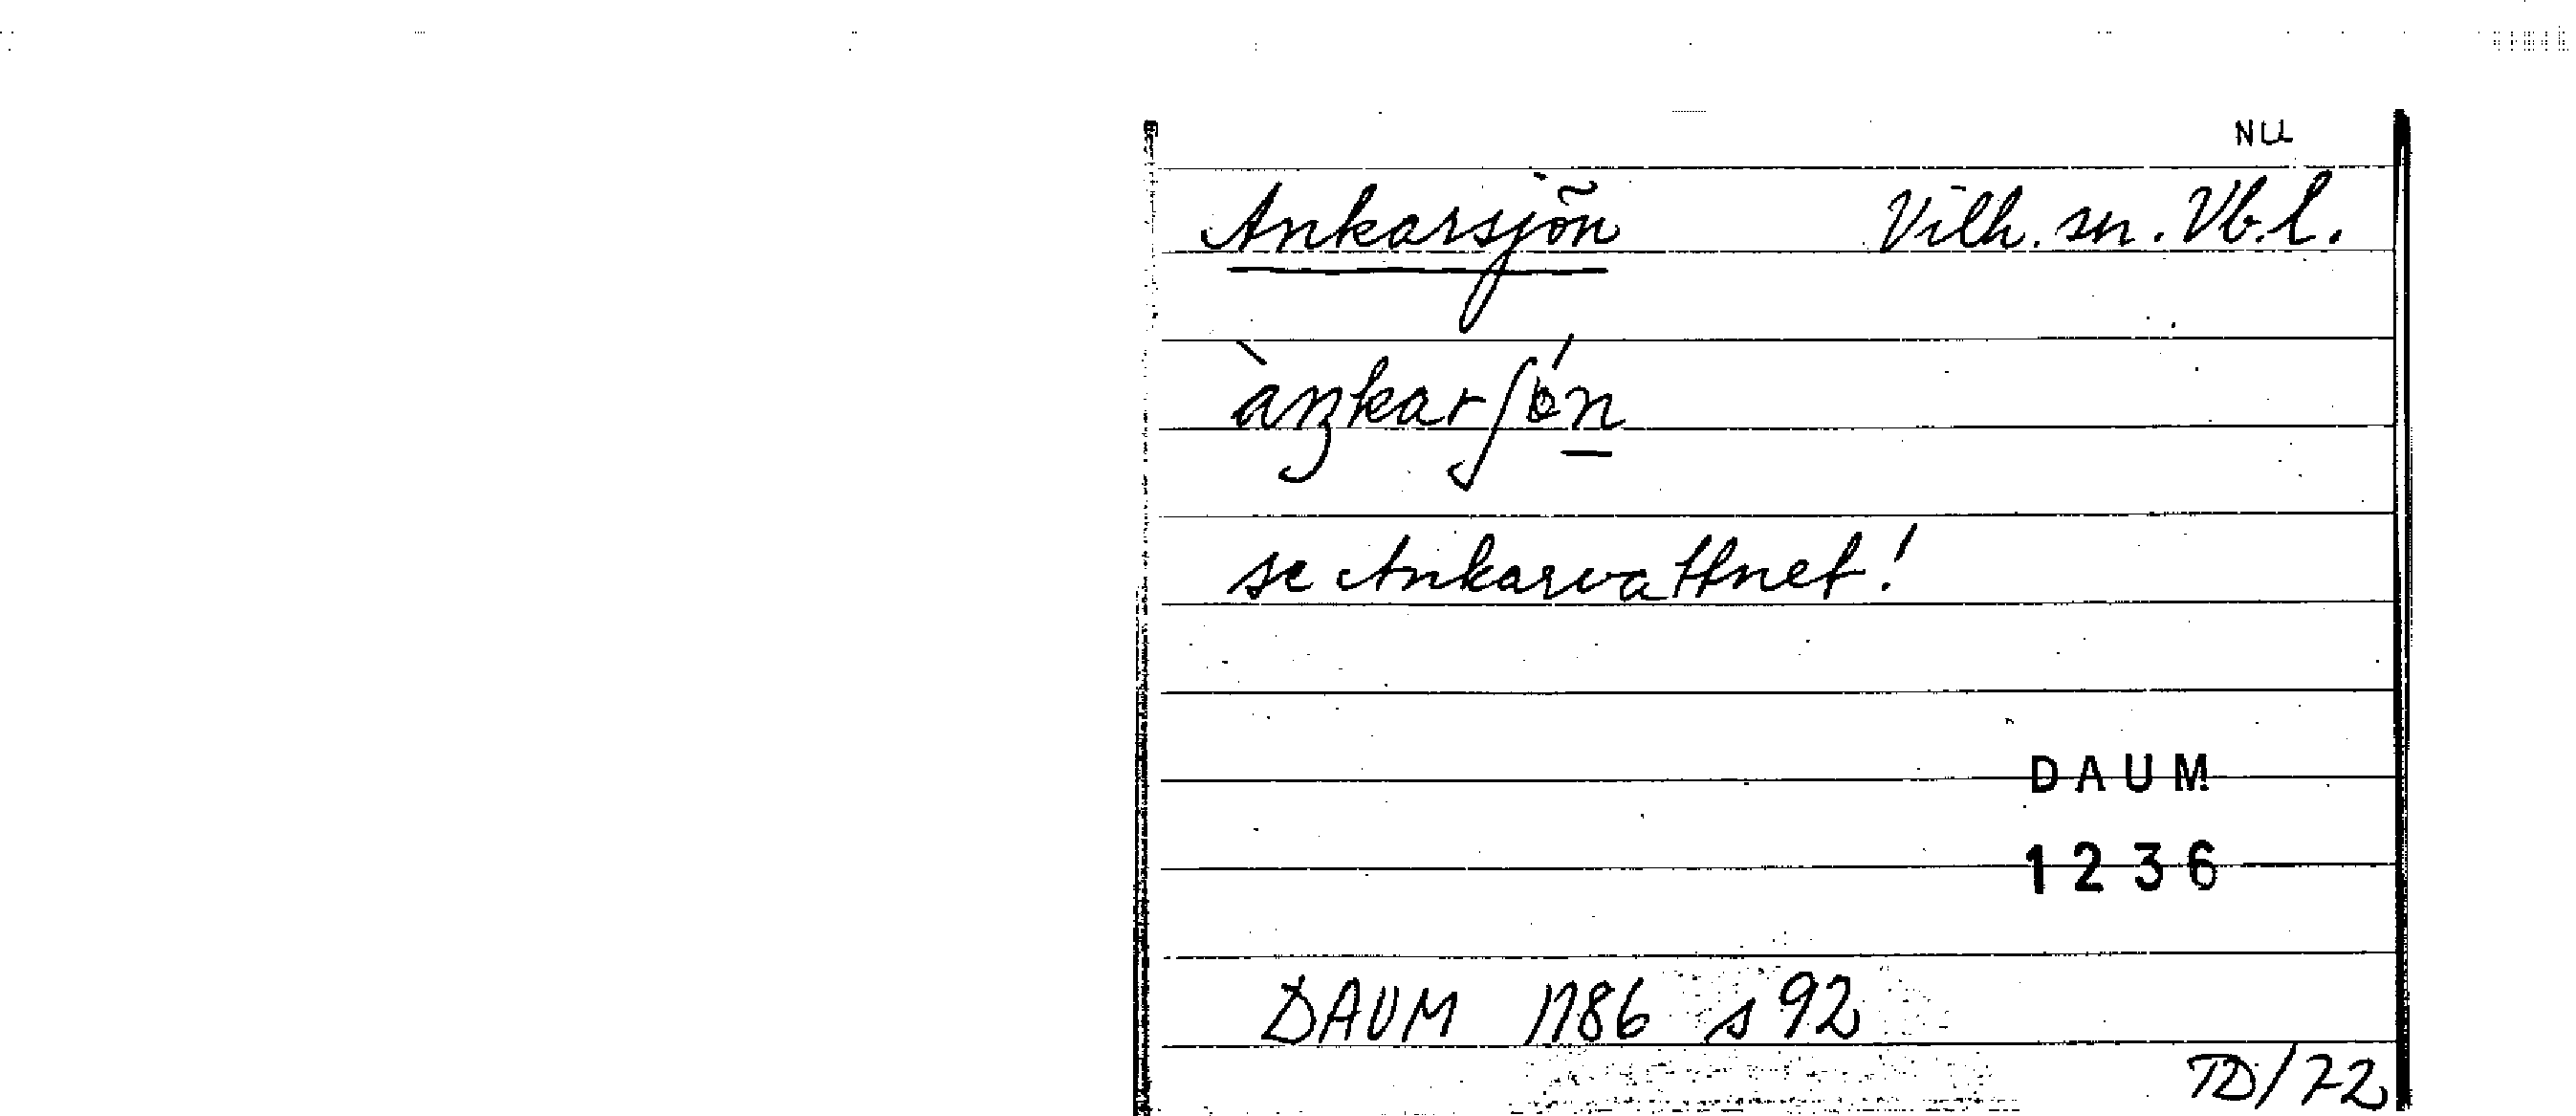 NU
Ankarsjön Vilh. sn. Vb.l.
àŋkarʃǿn
se Ankarvattnet!
DAUM
1236
DAUM 1186 s 92
TD/72